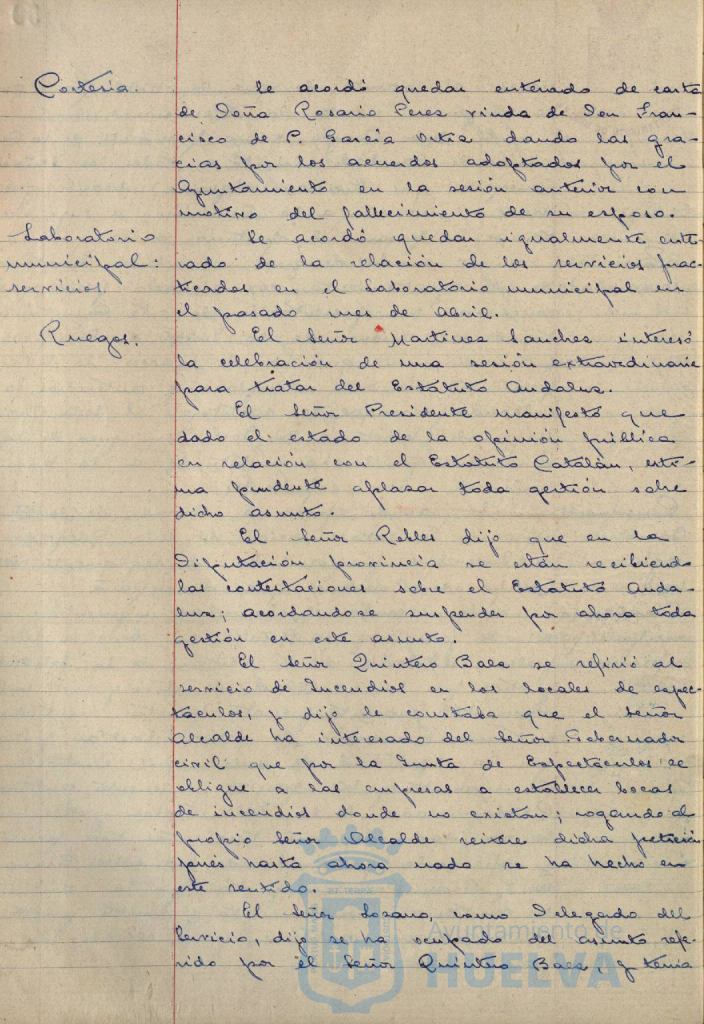 Cortesía.
Se acordó quedar enterado de carta
de Doña Rosario Perez viuda de Don Fran-
cisco de P. García Ortiz dando las gra-
cias por los acuerdos adoptados por el
Ayuntamiento en la sesión anterior con
motivo del fallecimiento de su esposo.
Laboratorio
municipal:
servicios.
Se acordó quedar igualmente ente-
rado de la relación de los servicios prac-
ticados en el Laboratorio municipal en
el pasado mes de Abril.
Ruegos.
El Señor Martinez Sanchez interesó
la celebración de una sesión extraordinaria
para tratar del Estatuto Andaluz.
El Señor Presidente manifestó que
dado el estado de la opinión pública
en relación con el Estatuto Catalán, esti-
ma prudente aplazar toda gestión sobre
dicho asunto.
El Señor Robles dijo que en la
Diputación provincia se están recibiendo
las contestaciones sobre el Estatuto Anda-
luz; acordandose suspender por ahora toda
gestión en este asunto.
El Señor Quintero Baez se refirió al
servicio de Incendios en los locales de espec-
táculos, y dijo le constaba que el Señor
Alcalde ha interesado del Señor Gobernador
civil que por la Junta de Espectáculos se
obligue a las empresas a establecer bocas
de incendios donde no existan; rogando al
propio Señor Alcalde reitere dicha petición
pués hasta ahora nada se ha hecho en
este sentido.
El Señor Lozano, como Delegado del
Servicio, dijo se ha ocupado del asunto refe-
rido por el Señor Quintero Baez, y tenia
Ayuntamiento de
HUELVA